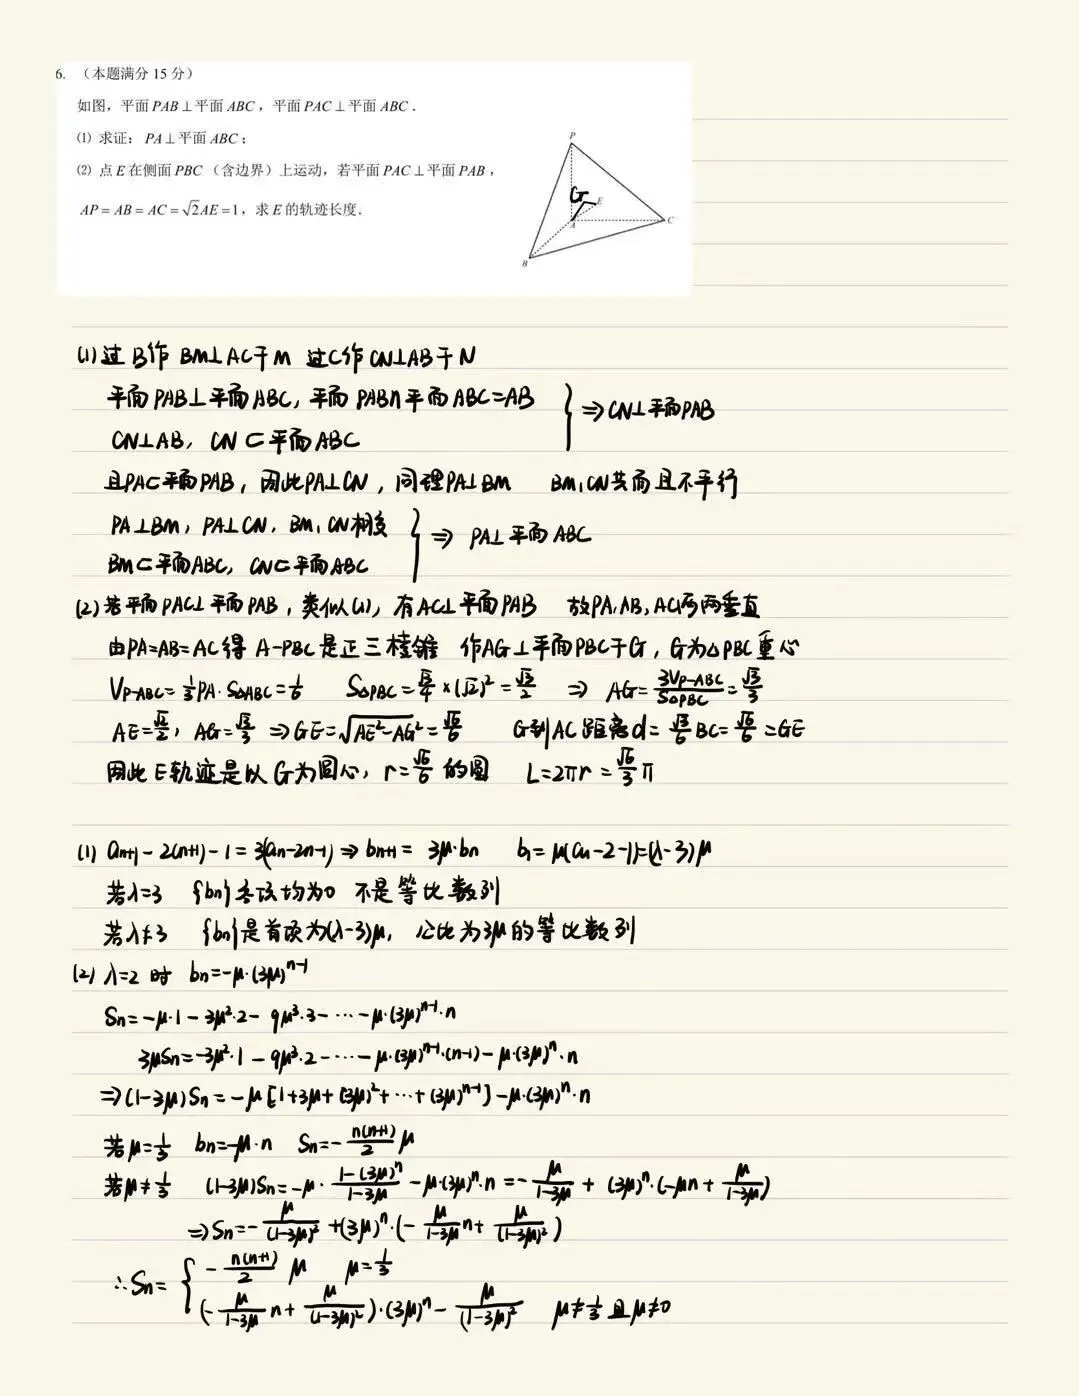 6. （本题满分 15 分）
如图，平面 PAB⊥平面 ABC，平面 PAC⊥平面 ABC．
⑴ 求证：PA⊥平面 ABC；
⑵ 点 E 在侧面 PBC（含边界）上运动，若平面 PAC⊥平面 PAB，
AP=AB=AC=√2AE=1，求 E 的轨迹长度．
P
G
E
A
C
B
(1) 过B作 BM⊥AC于M 过C作CN⊥AB于N
平面PAB⊥平面ABC, 平面PAB∩平面ABC=AB
CN⊥AB, CN⊂平面ABC
⇒CN⊥平面PAB
且PA⊂平面PAB, 因此PA⊥CN, 同理PA⊥BM BM,CN共面且不平行
PA⊥BM, PA⊥CN, BM,CN相交
BM⊂平面ABC, CN⊂平面ABC
⇒ PA⊥平面ABC
(2) 若平面PAC⊥平面PAB, 类似(1), 有AC⊥平面PAB 故PA,AB,AC两两垂直
由PA=AB=AC得 A-PBC是正三棱锥 作AG⊥平面PBC于G, G为△PBC重心
V_{P-ABC}=1/3 PA·S△ABC=1/6 S△PBC=√3/4×(√2)²=√3/2 ⇒ AG=3V_{P-ABC}/S△PBC=√3/3
AE=√2/2, AG=√3/3 ⇒GE=√(AE²-AG²)=√6/6 G到AC距离d=√3/6 BC=√6/6=GE
因此E轨迹是以G为圆心, r=√6/6的圆 L=2πr=√6/3 π
(1) a_{n+1}-2(n+1)-1=3(a_n-2n-1)⇒b_{n+1}=3μ·b_n b_1=μ(a_1-2-1)=(λ-3)μ
若λ=3 {b_n}各项均为0 不是等比数列
若λ≠3 {b_n}是首项为(λ-3)μ, 公比为3μ的等比数列
(2) λ=2时 b_n=-μ·(3μ)^{n-1}
S_n=-μ·1-3μ²·2-9μ³·3-⋯-μ·(3μ)^{n-1}·n
3μS_n=-3μ²·1-9μ³·2-⋯-μ·(3μ)^{n-1}·(n-1)-μ·(3μ)^n·n
⇒(1-3μ)S_n=-μ[1+3μ+(3μ)²+⋯+(3μ)^{n-1}]-μ·(3μ)^n·n
若μ=1/3 b_n=-μ·n S_n=-n(n+1)/2 μ
若μ≠1/3 (1-3μ)S_n=-μ·(1-(3μ)^n)/(1-3μ)-μ·(3μ)^n·n=-μ/(1-3μ)+(3μ)^n·(-μn+μ/(1-3μ))
⇒S_n=-μ/(1-3μ)²+(3μ)^n·(-μ/(1-3μ) n+μ/(1-3μ)²)
∴S_n={ -n(n+1)/2 μ μ=1/3
(-μ/(1-3μ) n+μ/(1-3μ)²)·(3μ)^n-μ/(1-3μ)² μ≠1/3且μ≠0